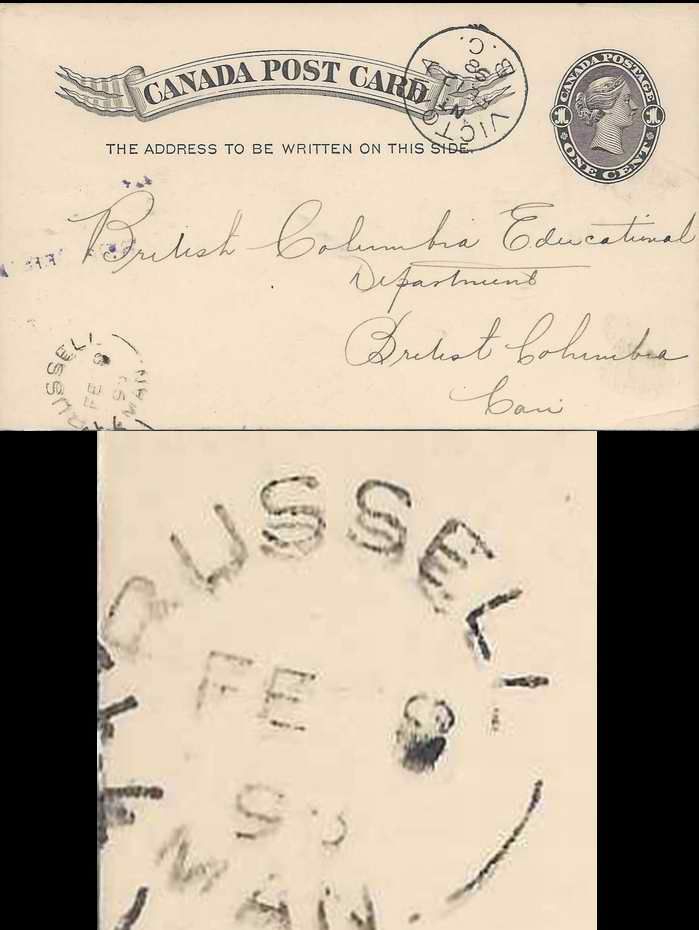 CANADA POST CARD
VICTORIA
B.C.
98
CANADA POSTAGE
1 1
ONE CENT
THE ADDRESS TO BE WRITTEN ON THIS SIDE.
British Columbia Educational
Department
British Columbia
Can
RUSSELL
FE 8
MAN.
RUSSELL
FE 8
MAN.